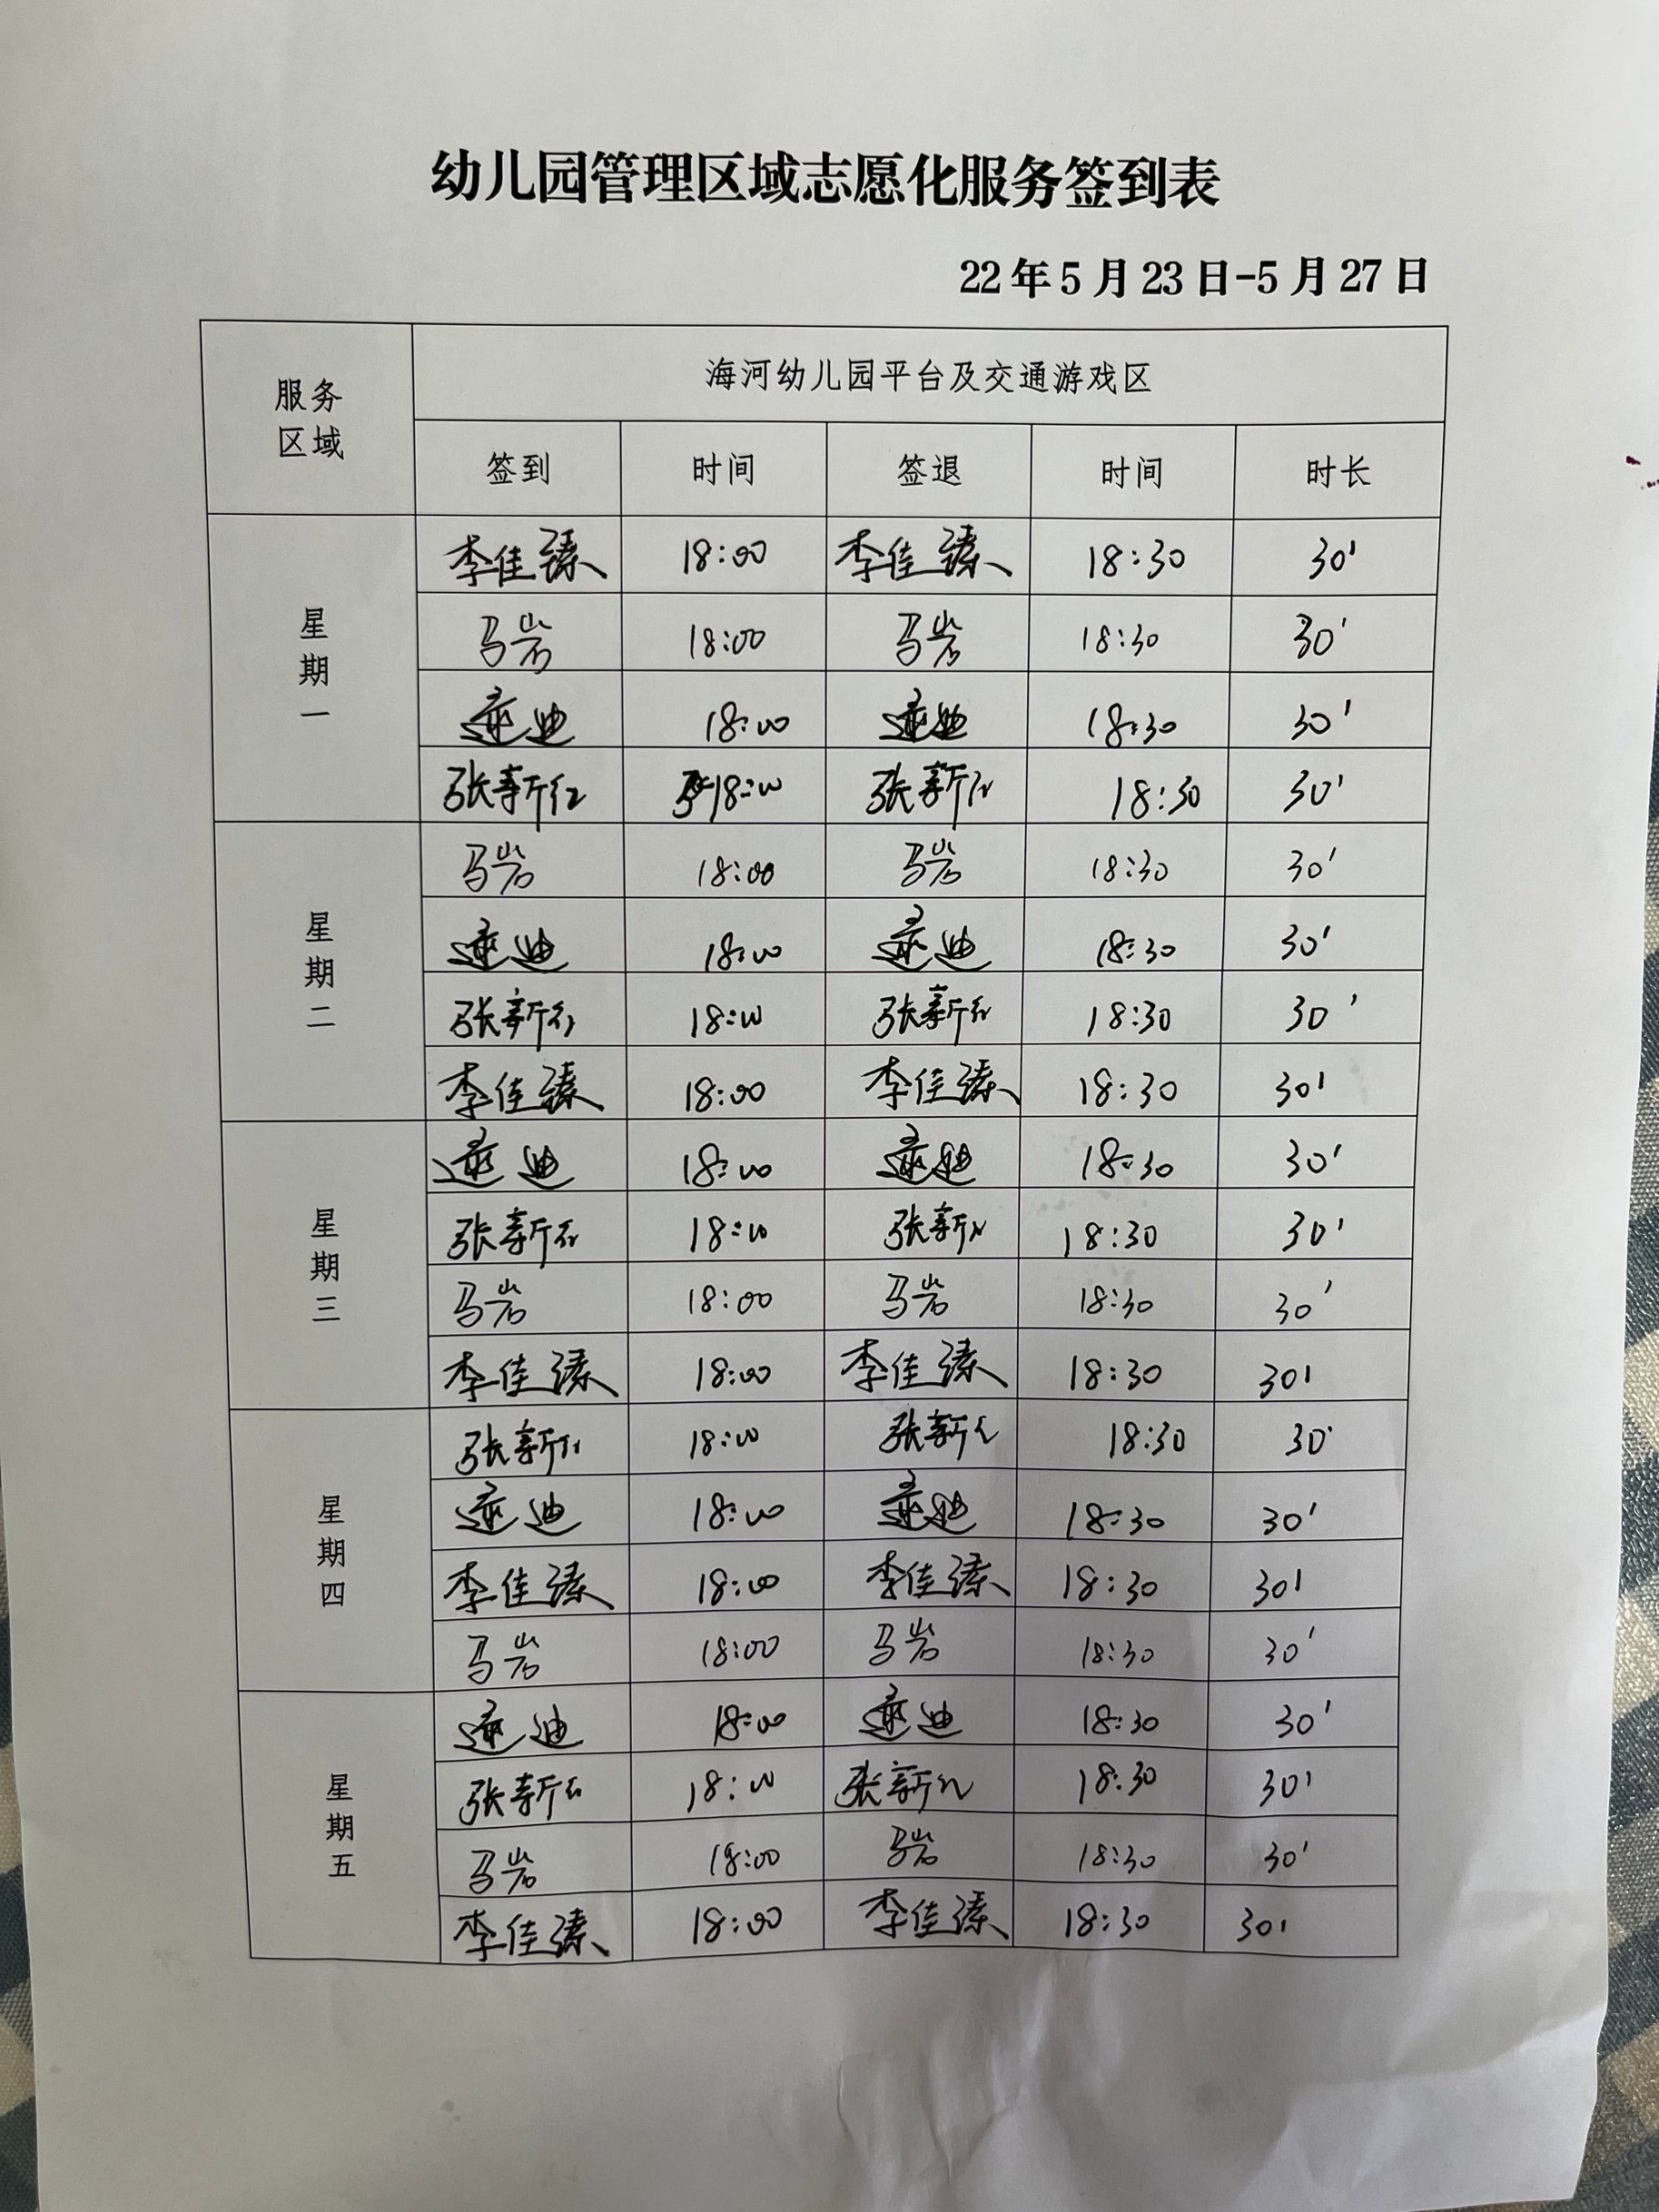 幼儿园管理区域志愿化服务签到表
22年5月23日-5月27日
服务区域 海河幼儿园平台及交通游戏区
签到 时间 签退 时间 时长
星期一
李佳臻 18:00 李佳臻 18:30 30'
马岩 18:00 马岩 18:30 30'
迪 18:00 迪 18:30 30'
张新红 18:00 张新红 18:30 30'
星期二
马岩 18:00 马岩 18:30 30'
迪 18:00 迪 18:30 30'
张新红 18:00 张新红 18:30 30'
李佳臻 18:00 李佳臻 18:30 30'
星期三
迪 18:00 迪 18:30 30'
张新红 18:00 张新红 18:30 30'
马岩 18:00 马岩 18:30 30'
李佳臻 18:00 李佳臻 18:30 30'
星期四
张新红 18:00 张新红 18:30 30'
迪 18:00 迪 18:30 30'
李佳臻 18:00 李佳臻 18:30 30'
马岩 18:00 马岩 18:30 30'
星期五
迪 18:00 迪 18:30 30'
张新红 18:00 张新红 18:30 30'
马岩 18:00 马岩 18:30 30'
李佳臻 18:00 李佳臻 18:30 30'